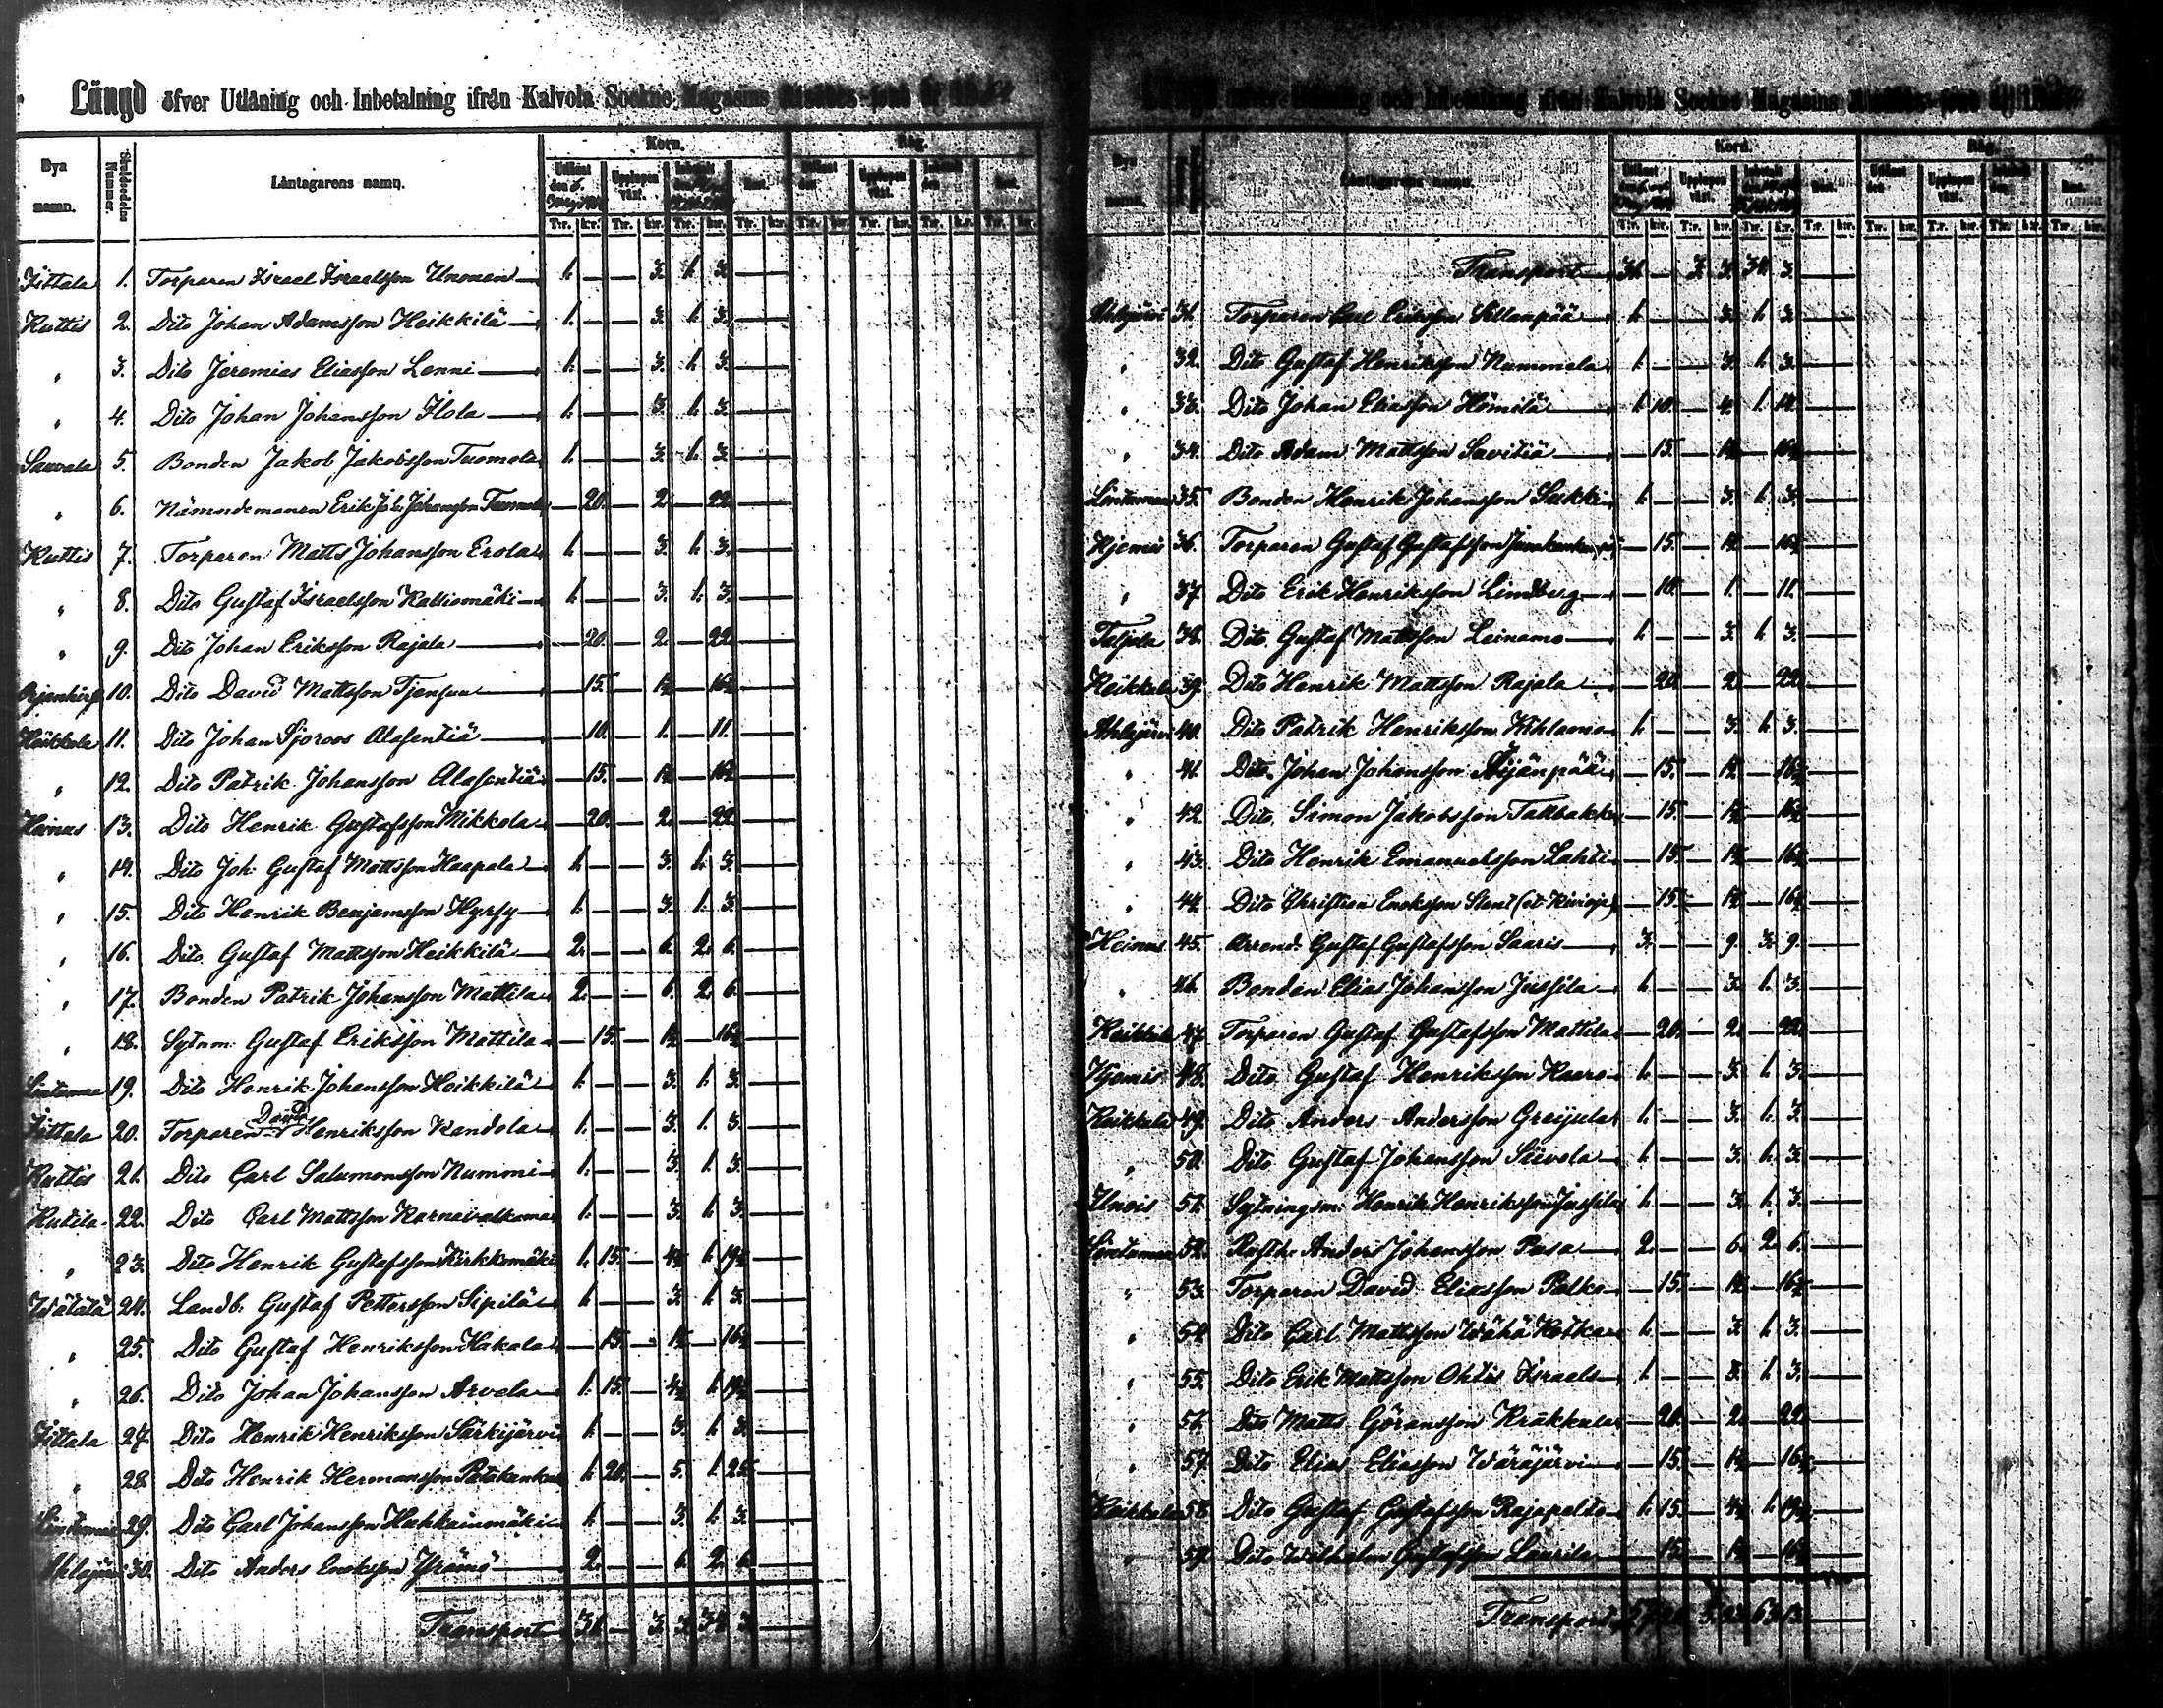 Längd öfver Utlåning och Inbetalning ifrån Kalvola Sockne Magasins
Bya namn. Skuldsedelns Nummer. Låntagarens namn. Korn. Råg.
Utlånt den Upplupen växt. Inbetalt den Rest. Utlånt den Upplupen växt. Inbetalt den Rest.
T:r. k:r. T:r. k:r. T:r. k:r. T:r. k:r. T:r. k:r. T:r. k:r. T:r. k:r. T:r. k:r.
Iittala 1. Torparen Israel Israelsson Unonen 1. — — 3. 1. 3. —
Kuttis 2. Dito Johan Adamsson Heikkilä 1. — — 3. 1. 3. —
" 3. Dito Jeremias Eliasson Lenni 1. — — 3. 1. 3. —
" 4. Dito Johan Johansson Ilola 1. — — 3. 1. 3. —
Sauvala 5. Bonden Jakob Jakobsson Tuomola 1. — — 3. 1. 3.
" 6. Nämndemannen Erik Joh. Johansson Tuomola — 20. — 2. — 22.
Kuttis 7. Torparen Matts Johansson Erola 1. — — 3. 1. 3. —
" 8. Dito Gustaf Israelsson Kalliomäki 1. — — 3. 1. 3. —
" 9. Dito Johan Eriksson Rajala — 20. — 2. — 22. —
10. Dito David Mattsson — 15. — 1½ — 16½ —
Heikkola 11. Dito Johan Sjöroos Alasentiä — 10. — 1. — 11. —
" 12. Dito Patrik Johansson Alasentiä — 15. — 1½ — 16½ —
Heinus 13. Dito Henrik Gustafsson Mikkola — 20. — 2. — 22. —
" 14. Dito Joh. Gustaf Mattsson Haapala 1. — — 3. 1. 3. —
" 15. Dito Henrik Benjamsson Hyrsy 1. — — 3. 1. 3. —
" 16. Dito Gustaf Mattsson Heikkilä 2. — — 6. 2. 6. —
" 17. Bonden Patrik Johansson Mattila 2. — — 6. 2. 6. —
" 18. Sytnm. Gustaf Eriksson Mattila — 15. — 1½ — 16½ —
Lintumaa 19. Dito Henrik Johansson Heikkilä 1. — — 3. 1. 3. —
Iittala 20. Torparen David Henriksson Kandola 1. — — 3. 1. 3. —
Kuttis 21. Dito Carl Salumonsson Nummi 1. — — 3. 1. 3. —
Kutila 22. Dito Carl Mattsson Karnavalkama 1. — — 3. 1. 3. —
" 23. Dito Henrik Gustafsson Kirkkomäki 1. 15. — 4½ 1. 19½ —
Wätälä 24. Landb. Gustaf Pettersson Sipilä 1. — — 3. 1. 3. —
" 25. Dito Gustaf Henriksson Hakala — 15. — 1½ — 16½ —
" 26. Dito Johan Johansson Arvela 1. 15. — 4½ 1. 19½ —
Iittala 27. Dito Henrik Henriksson Särkijärvi 1. — — 3. 1. 3. —
" 28. Dito Henrik Hermansson 1. 20. — 5. 1. 25. —
Lintumaa 29. Dito Carl Johansson Hahkainmäki 1. — — 3. 1. 3. —
Ahlajärvi 30. Dito Anders Enoksson 2. — — 6. 2. 6. —
Transport 31. — 3. 3. 34. 3. —
öfver Utlåning och Inbetalning ifrån Kalvola Sockne Magasins
Bya namn. Låntagarens namn. Korn. Råg.
Utlånt den Upplupen växt. Inbetalt den Rest. Utlånt den Upplupen växt. Inbetalt den Rest.
T:r. k:r. T:r. k:r. T:r. k:r. T:r. k:r. T:r. k:r. T:r. k:r. T:r. k:r. T:r. k:r.
Transport 31. — 3. 3. 34. 3. —
Ahlajärvi 31. Torparen Carl Eriksson Sillanpää 1. — — 3. 1. 3. —
" 32. Dito Gustaf Henriksson Nummela 1. — — 3. 1. 3. —
" 33. Dito Johan Eliasson Hömilä 1. 10. — 4. 1. 14. —
" 34. Dito Adam Mattsson Savitiä — 15. — 1½ — 16½ —
Lintumaa 35. Bonden Henrik Johansson Sukki 1. — — 3. 1. 3. —
Hjemis 36. Torparen Gustaf Gustafsson — 15. — 1½ — 16½ —
" 37. Dito Erik Henriksson Lindberg — 10. — 1. — 11. —
Taljala 38. Dito Gustaf Mattsson Leinamo 1. — — 3. 1. 3. —
Heikkola 39. Dito Henrik Mattsson Rajala — 20. — 2. — 22. —
Ahlajärvi 40. Dito Patrik Henriksson Kihlaoma 1. — — 3. 1. 3. —
" 41. Dito Johan Johansson Äijänpää — 15. — 1½ — 16½ —
" 42. Dito Simon Jakobsson Tallbakka — 15. — 1½ — 16½ —
" 43. Dito Henrik Emanuelsson Lahti — 15. — 1½ — 16½ —
" 44. Dito Christian Enoksson — 15. — 1½ — 16½ —
Heinus 45. Arrend. Gustaf Gustafsson Saaris 3. — — 9. 3. 9. —
" 46. Bonden Elias Johansson Jussila 1. — — 3. 1. 3. —
Heikkola 47. Torparen Gustaf Gustafsson Mattila — 20. — 2. — 22. —
Hjemis 48. Dito Gustaf Henriksson Kaero 1. — — 3. 1. 3. —
Heikkola 49. Dito Anders Andersson Greijula 1. — — 3. 1. 3. —
" 50. Dito Gustaf Johansson Siivola 1. — — 3. 1. 3. —
51. Sytningsm. Henrik Henriksson Jussila 1. — — 3. 1. 3. —
Lintumaa 52. Rusth. Anders Johansson Pasa 2. — — 6. 2. 6. —
" 53. Torparen David Eliasson Palko — 15. — 1½ — 16½ —
" 54. Dito Carl Mattsson Wähä Kotka 1. — — 3. 1. 3. —
" 55. Dito Erik Mattsson Ohtis Israels 1. — — 3. 1. 3. —
" 56. Dito Matts Göransson Kräkkula — 20. — 2. — 22. —
" 57. Dito Elias Eliasson Wäräjärvi — 15. — 1½ — 16½ —
Heikkola 58. Dito Gustaf Gustafsson Rajapelto 1. 15. — 4½ 1. 19½ —
" 59. Dito Wilhelm Gustafsson Laurila — 15. — 1½ — 16½ —
Transport